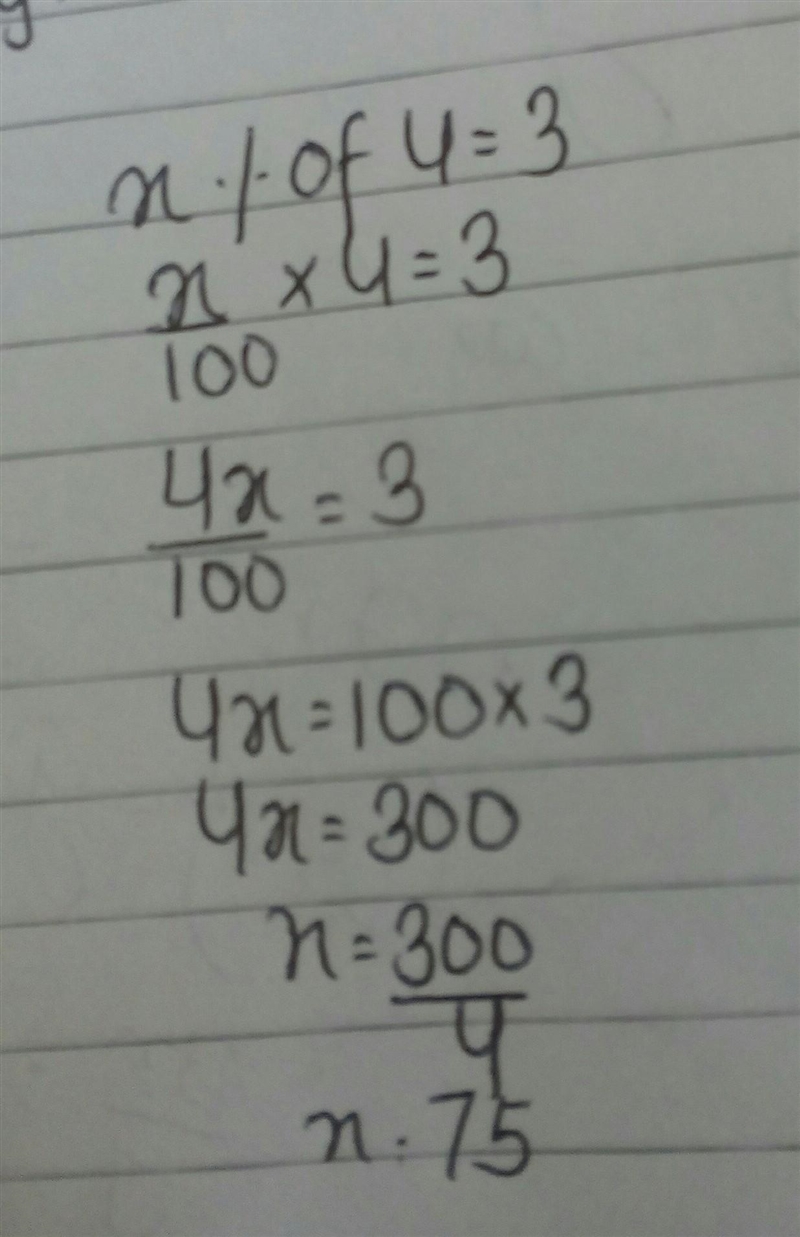 x % of 4 = 3
x/100 × 4 = 3
4x/100 = 3
4x = 100 × 3
4x = 300
x = 300/4
x = 75